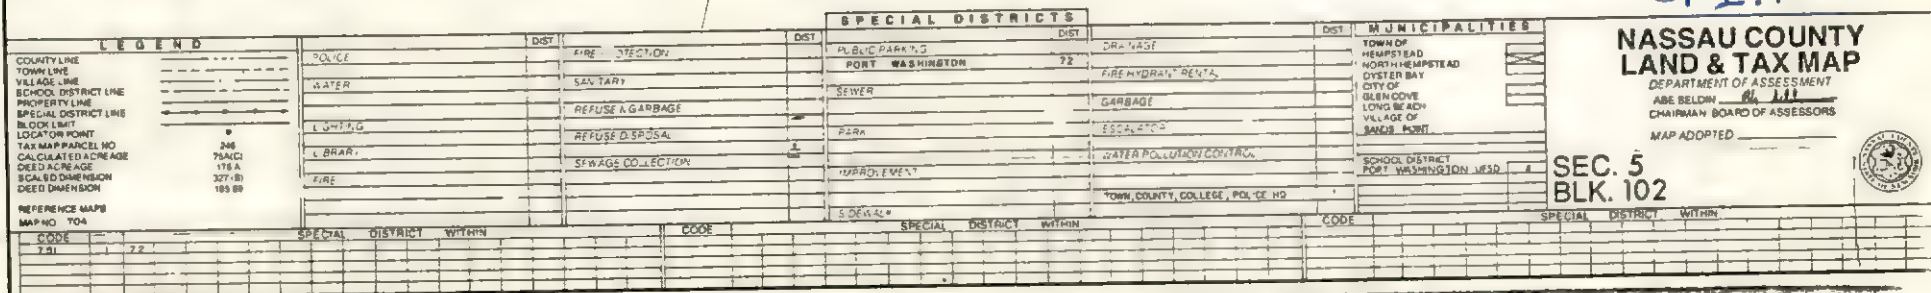 LEGEND
COUNTY LINE
TOWN LINE
VILLAGE LINE
SCHOOL DISTRICT LINE
PROPERTY LINE
SPECIAL DISTRICT LINE
BLOCK LIMIT
LOCATOR POINT
TAX MAP PARCEL NO 246
CALCULATED ACREAGE
DEED ACREAGE
SCALED DIMENSION
DEED DIMENSION
REFERENCE MAPS
MAP NO 704
SPECIAL DISTRICTS
DIST
POLICE
WATER
LIGHTING
LIBRARY
FIRE
DIST
FIRE
SANITARY
REFUSE & GARBAGE
REFUSE DISPOSAL
SEWAGE COLLECTION
DIST
PUBLIC PARKING
PORT WASHINGTON 72
SEWER
PARK
IMPROVEMENT
SIDEWALK
DIST
DRAINAGE
FIRE HYDRANT RENTAL
GARBAGE
ESCALATOR
WATER POLLUTION CONTROL
TOWN, COUNTY, COLLEGE, POLICE HQ
MUNICIPALITIES
TOWN OF
HEMPSTEAD
NORTH HEMPSTEAD
OYSTER BAY
CITY OF
GLEN COVE
LONG BEACH
VILLAGE OF
SANDS POINT
SCHOOL DISTRICT
PORT WASHINGTON UFSD 4
NASSAU COUNTY
LAND & TAX MAP
DEPARTMENT OF ASSESSMENT
ABE SELDIN
CHAIRMAN BOARD OF ASSESSORS
MAP ADOPTED
SEC. 5
BLK. 102
CODE SPECIAL DISTRICT WITHIN
CODE SPECIAL DISTRICT WITHIN
CODE SPECIAL DISTRICT WITHIN
72